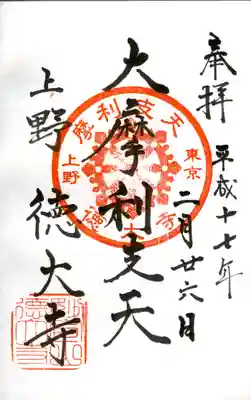 奉拝
平成十七年
二月廿六日
大摩利支天
上野 徳大寺
摩利支天
東京
上野
徳大寺